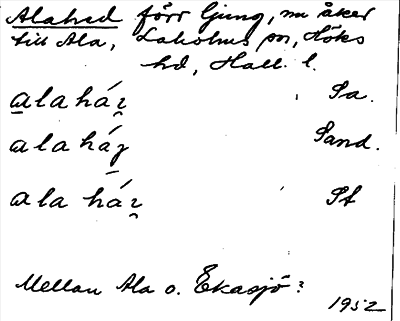 Alahed förr ljung, nu åker
till Ala, Laholms sn, Höks
hd, Hall. l.
alaház̯ Sa.
alaház̯ Sand.
ala ház̯ St
Mellan Ala o. Ekasjö?
1952